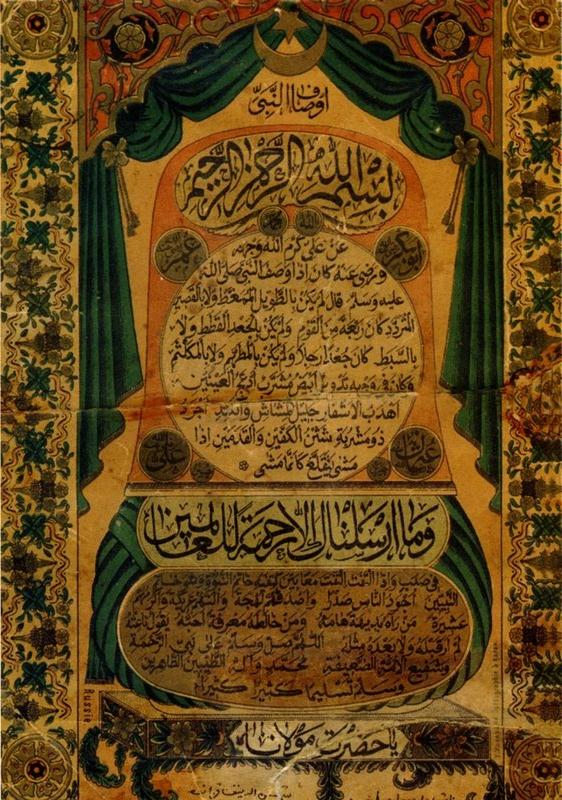 اوصاف النبی
بسم الله الرحمن الرحيم
الله محمد
ابوبكر عمر
عن علی كرم الله وجهه
ورضی عنه كان اذا وصف النبی صلی الله
عليه وسلم قال لم يكن بالطويل الممغط ولا بالقصير
المتردد كان ربعة من القوم ولم يكن بالجعد القطط ولا
بالسبط كان جعدا رجلا ولم يكن بالمطهم ولا بالمكلثم
وكان فی وجهه تدوير ابيض مشرب ادعج العينين
اهدب الاشفار جليل المشاش والكتد اجرد
ذو مسربة شثن الكفين والقدمين اذا
مشی يتقلع كانما مشی
عثمان علی
وما ارسلناك الا رحمة للعالمين
فی صبب واذا التفت التفت معا بين كتفيه خاتم النبوة وهو خاتم
النبيين اجود الناس صدرا واصدقهم لهجة والينهم عريكة واكرمهم
عشيرة من رآه بديهة هابه ومن خالطه معرفة احبه يقول ناعته
لم ار قبله ولا بعده مثله اللهم صل وسلم علی نبی الرحمة
وشفيع الامة محمد وآله الطيبين الطاهرين
وسلم تسليما كثيرا كثيرا
Russie
يا حضرت مولانا